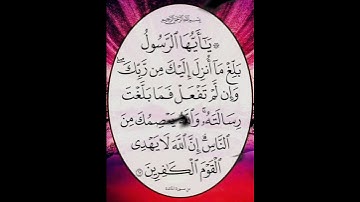 بسم الله الرحمن الرحيم
۞ يَٰٓأَيُّهَا ٱلرَّسُولُ
بَلِّغْ مَآ أُنزِلَ إِلَيْكَ مِن رَّبِّكَ ۖ
وَإِن لَّمْ تَفْعَلْ فَمَا بَلَّغْتَ
رِسَالَتَهُۥ ۚ يَعْصِمُكَ مِنَ
ٱلنَّاسِ ۗ إِنَّ ٱللَّهَ لَا يَهْدِى
ٱلْقَوْمَ ٱلْكَٰفِرِينَ
من سورة المائدة